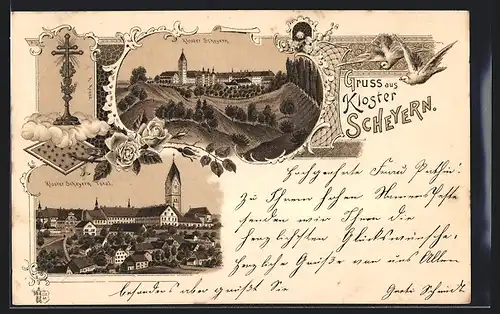 Kloster Scheyern.
Gruss aus
Kloster
SCHEYERN.
Kloster Scheyern, Total.
Hochgeehrte Frau Pathin!
Zu Ihrem hohen Namensfeste
senden wir Ihnen die
herzlichsten Glückwünsche.
Herzliche Grüße von uns Allen
besonders aber grüßt Sie
Schmidt